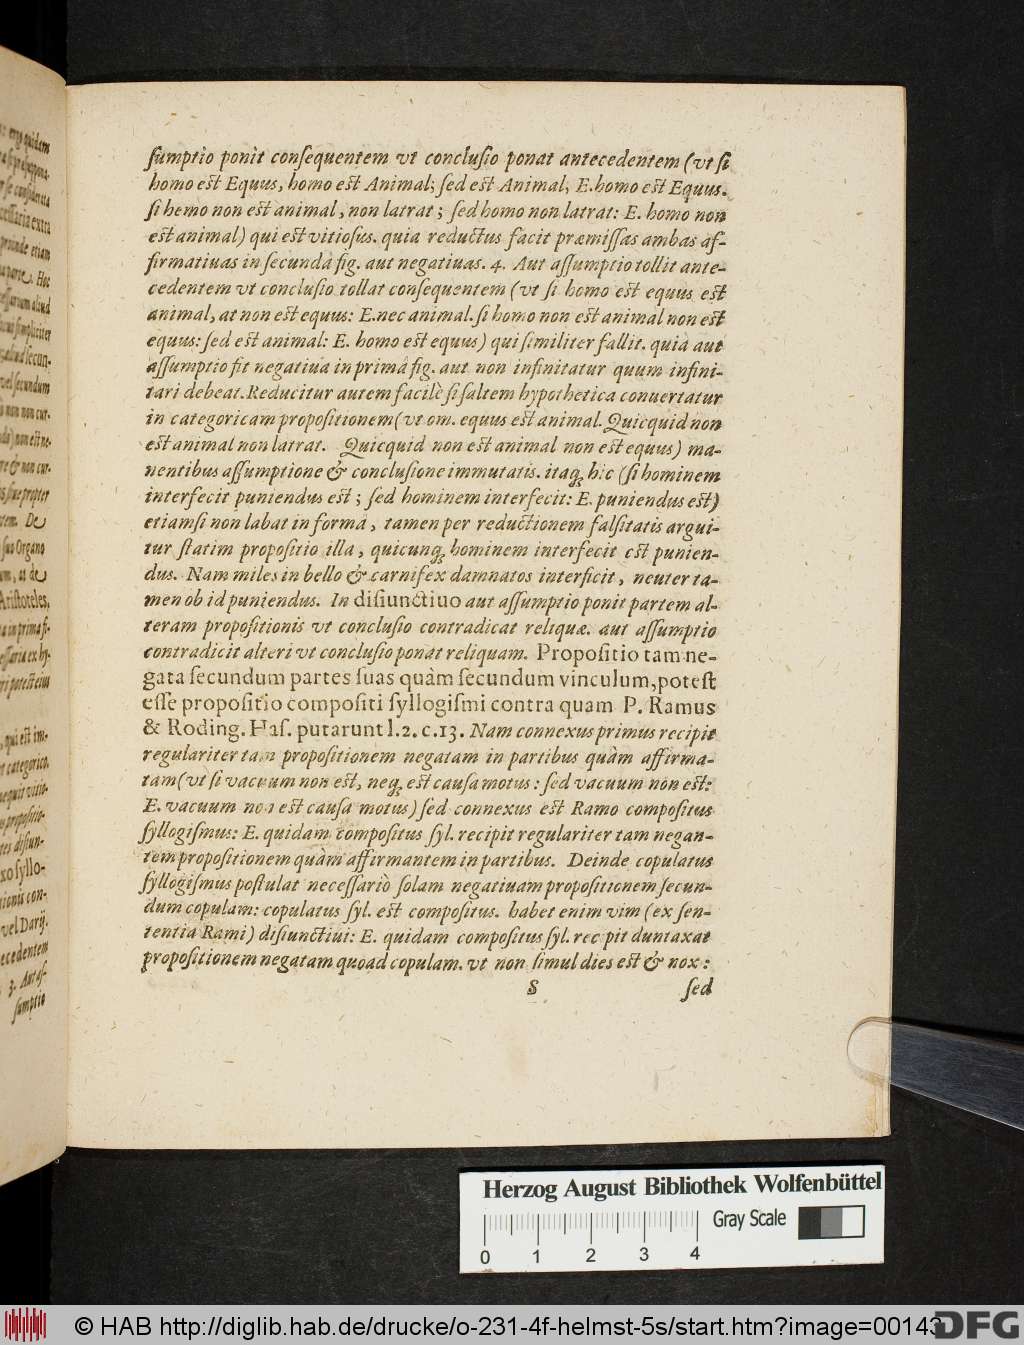 sumptio ponit consequentem vt conclusio ponat antecedentem (vt si
homo est Equus, homo est Animal; sed est Animal, E. homo est Equus.
si hemo non est animal, non latrat; sed homo non latrat: E. homo non
est animal) qui est vitiosus. quia reductus facit præmissas ambas af-
firmatiuas in secundâ fig. aut negatiuas. 4. Aut assumptio tollit ante-
cedentem vt conclusio tollat consequentem (vt si homo est equus est
animal, at non est equus: E. nec animal. si homo non est animal non est
equus: sed est animal: E. homo est equus) qui similiter fallit. quia aut
assumptio fit negatiua in primâ fig. aut non infinitatur quum infini-
tari debeat. Reducitur autem facilè si saltem hypothetica conuertatur
in categoricam propositionem (vt om. equus est animal. Quicquid non
est animal non latrat. Quicquid non est animal non est equus) ma-
nentibus assumptione & conclusione immutatis. itaq; hic (si hominem
interfecit puniendus est; sed hominem interfecit: E. puniendus est)
etiamsi non labat in forma, tamen per reductionem falsitatis argui-
tur statim propositio illa, quicunq; hominem interfecit est punien-
dus. Nam miles in bello & carnifex damnatos interficit, neuter ta-
men ob id puniendus. In disiunctiuo aut assumptio ponit partem al-
teram propositionis vt conclusio contradicat reliquæ. aut assumptio
contradicit alteri vt conclusio ponat reliquam. Propositio tam ne-
gata secundum partes suas quàm secundum vinculum, potest
esse propositio compositi syllogismi contra quam P. Ramus
& Roding. Has. putarunt l. 2. c. 13. Nam connexus primus recipit
regulariter tam propositionem negatam in partibus quàm affirma-
tam (vt si vacuum non est, neq; est causa motus: sed vacuum non est:
E. vacuum non est causa motus) sed connexus est Ramo compositus
syllogismus: E. quidam compositus syl. recipit regulariter tam negan-
tem propositionem quàm affirmantem in partibus. Deinde copulatus
syllogismus postulat necessariò solam negatiuam propositionem secun-
dum copulam: copulatus syl. est compositus. habet enim vim (ex sen-
tentia Rami) disiunctiui: E. quidam compositus syl. recipit duntaxat
propositionem negatam quoad copulam. vt non simul dies est & nox:
S sed
Herzog August Bibliothek Wolfenbüttel
Gray Scale
0 1 2 3 4
© HAB http://diglib.hab.de/drucke/o-231-4f-helmst-5s/start.htm?image=00143
DFG